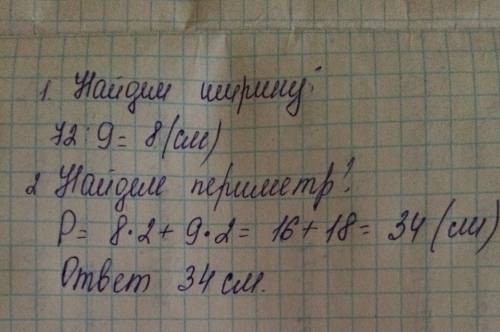 1. Найдем ширину:
72:9= 8(см)
2 Найдем периметр:
P= 8·2+9·2= 16+18= 34(см)
Ответ 34 см.